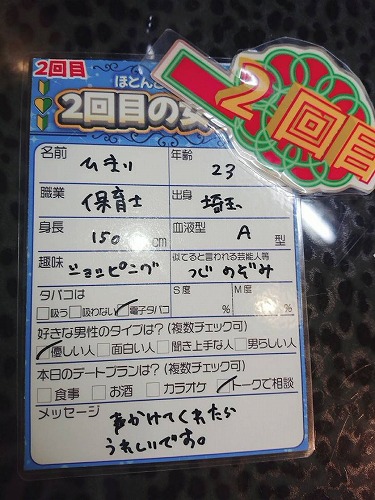 2回目
ほとんど
2回目の女
2回目
名前 ひまり 年齢 23
職業 保育士 出身 埼玉
身長 150 cm 血液型 A 型
趣味 ショッピング 似てると言われる芸能人等 つじ のぞみ
タバコは S度 M度
吸う 吸わない 電子タバコ % %
好きな男性のタイプは?(複数チェック可)
優しい人 面白い人 聞き上手な人 男らしい人
本日のデートプランは?(複数チェック可)
食事 お酒 カラオケ トークで相談
メッセージ 声かけてくれたら
うれしいです。